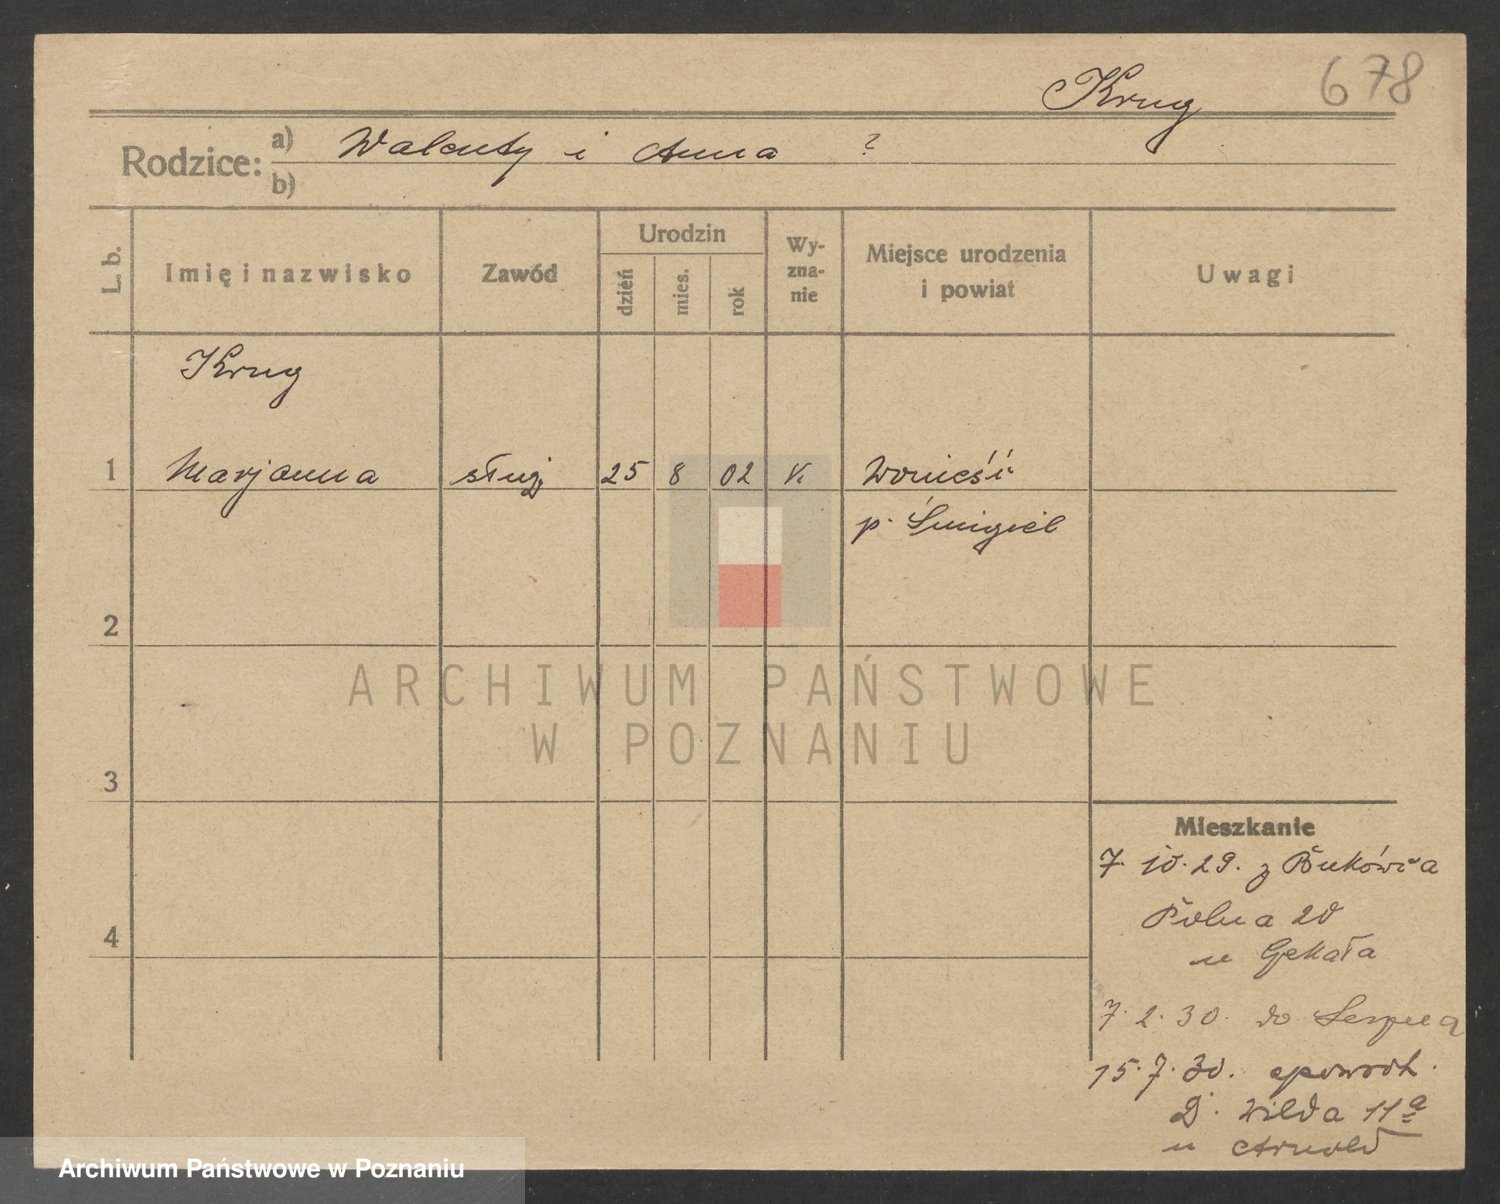 Krug 678
Rodzice: a) Walenty i Anna ?
b)
L. b. Imię i nazwisko Zawód Urodzin dzień mies. rok Wy-zna-nie Miejsce urodzenia i powiat Uwagi
Krug
1 Marjanna służ. 25 8 02 k. Wonieść
p. Śmigiel
2
ARCHIWUM PAŃSTWOWE
W POZNANIU
3
Mieszkanie
7. 10. 29. z Bukówca
4 Polna 20
u Gekała
7. 2. 30. do
15. 7. 30. spowrot.
D. Wilda 11a
u Arnold
Archiwum Państwowe w Poznaniu